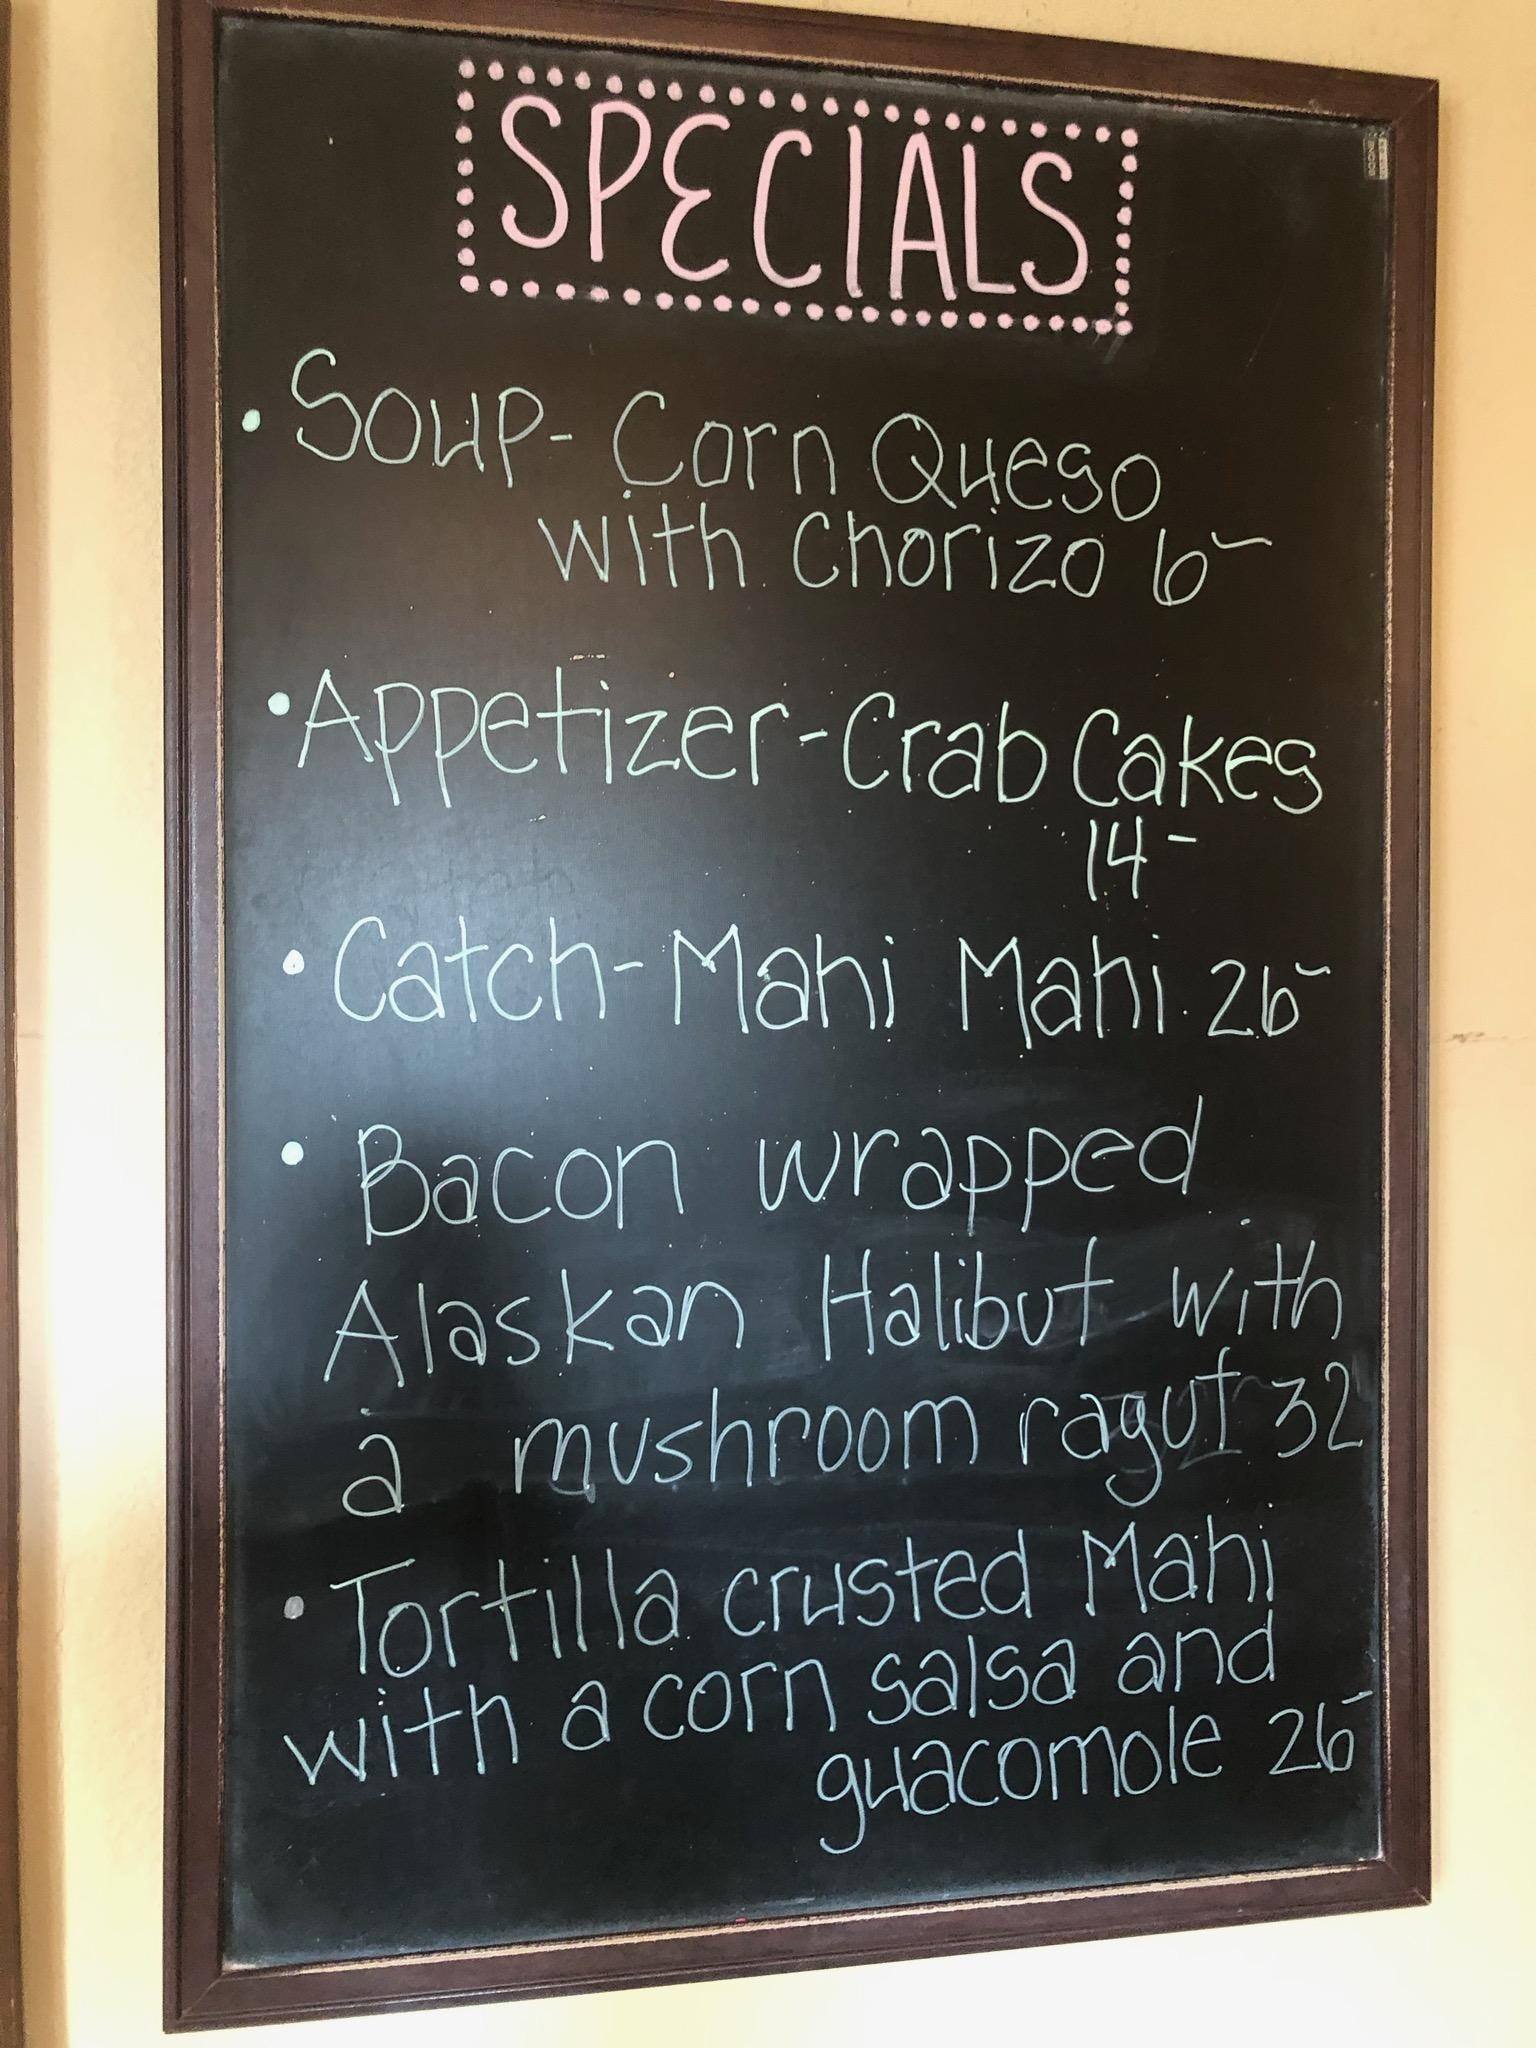 SPECIALS
• Soup- Corn Queso
with Chorizo 6-
• Appetizer-Crab Cakes
14-
• Catch-Mahi Mahi 26-
• Bacon wrapped
Alaskan Halibut with
a mushroom ragut 32
• Tortilla crusted Mahi
with a corn salsa and
guacomole 26-